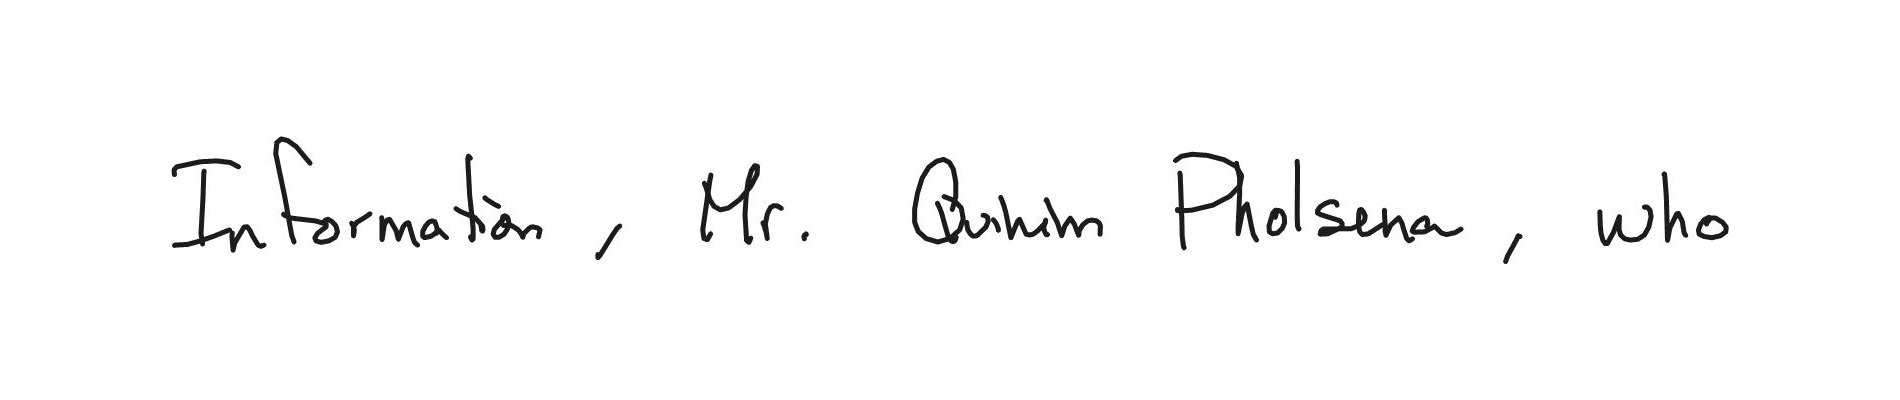 Information, Mr. Quinim Pholsena, who